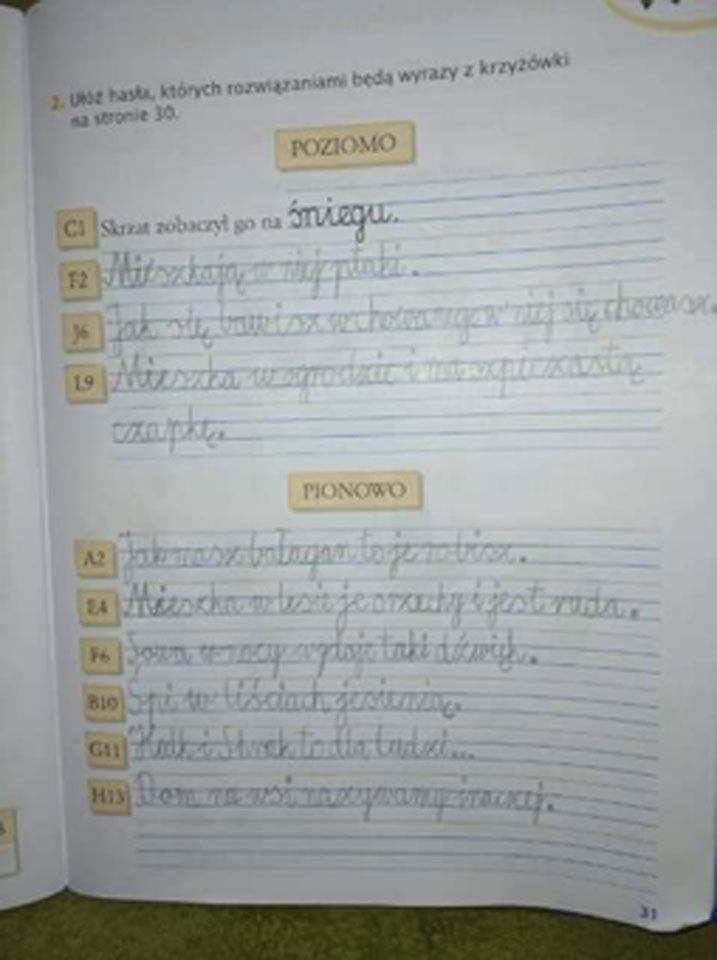 2. Ułóż hasła, których rozwiązaniami będą wyrazy z krzyżówki
na stronie 30.
POZIOMO
C1 Skrzat zobaczył go na śniegu.
F2 Mieszkają w niej ptaki.
J6 Jak się bawisz w chowanego w niej się chowasz.
L9 Mieszka w ogrodzie i ma szpiczastą
czapkę.
PIONOWO
A2 Jak masz bałagan to je robisz.
E4 Mieszka w lesie je orzechy i jest ruda.
F6 Sowa w nocy wydaje taki dźwięk.
B10 Śpi w liściach jesienią.
G11 to dla ludzi...
H13 Dom na wsi nazywamy inaczej.
31